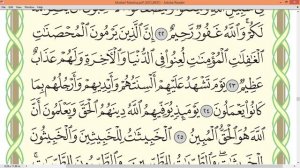 لَكُمْ ۗ وَٱللَّهُ غَفُورٌ رَّحِيمٌ ٢٢ إِنَّ ٱلَّذِينَ يَرْمُونَ ٱلْمُحْصَنَٰتِ
ٱلْغَٰفِلَٰتِ ٱلْمُؤْمِنَٰتِ لُعِنُوا۟ فِى ٱلدُّنْيَا وَٱلْءَاخِرَةِ وَلَهُمْ عَذَابٌ
عَظِيمٌ ٢٣ يَوْمَ تَشْهَدُ عَلَيْهِمْ أَلْسِنَتُهُمْ وَأَيْدِيهِمْ وَأَرْجُلُهُم بِمَا
كَانُوا۟ يَعْمَلُونَ ٢٤ يَوْمَئِذٍ يُوَفِّيهِمُ ٱللَّهُ دِينَهُمُ ٱلْحَقَّ وَيَعْلَمُونَ أَنَّ
ٱللَّهَ هُوَ ٱلْحَقُّ ٱلْمُبِينُ ٢٥ ٱلْخَبِيثَٰتُ لِلْخَبِيثِينَ وَٱلْخَبِيثُونَ